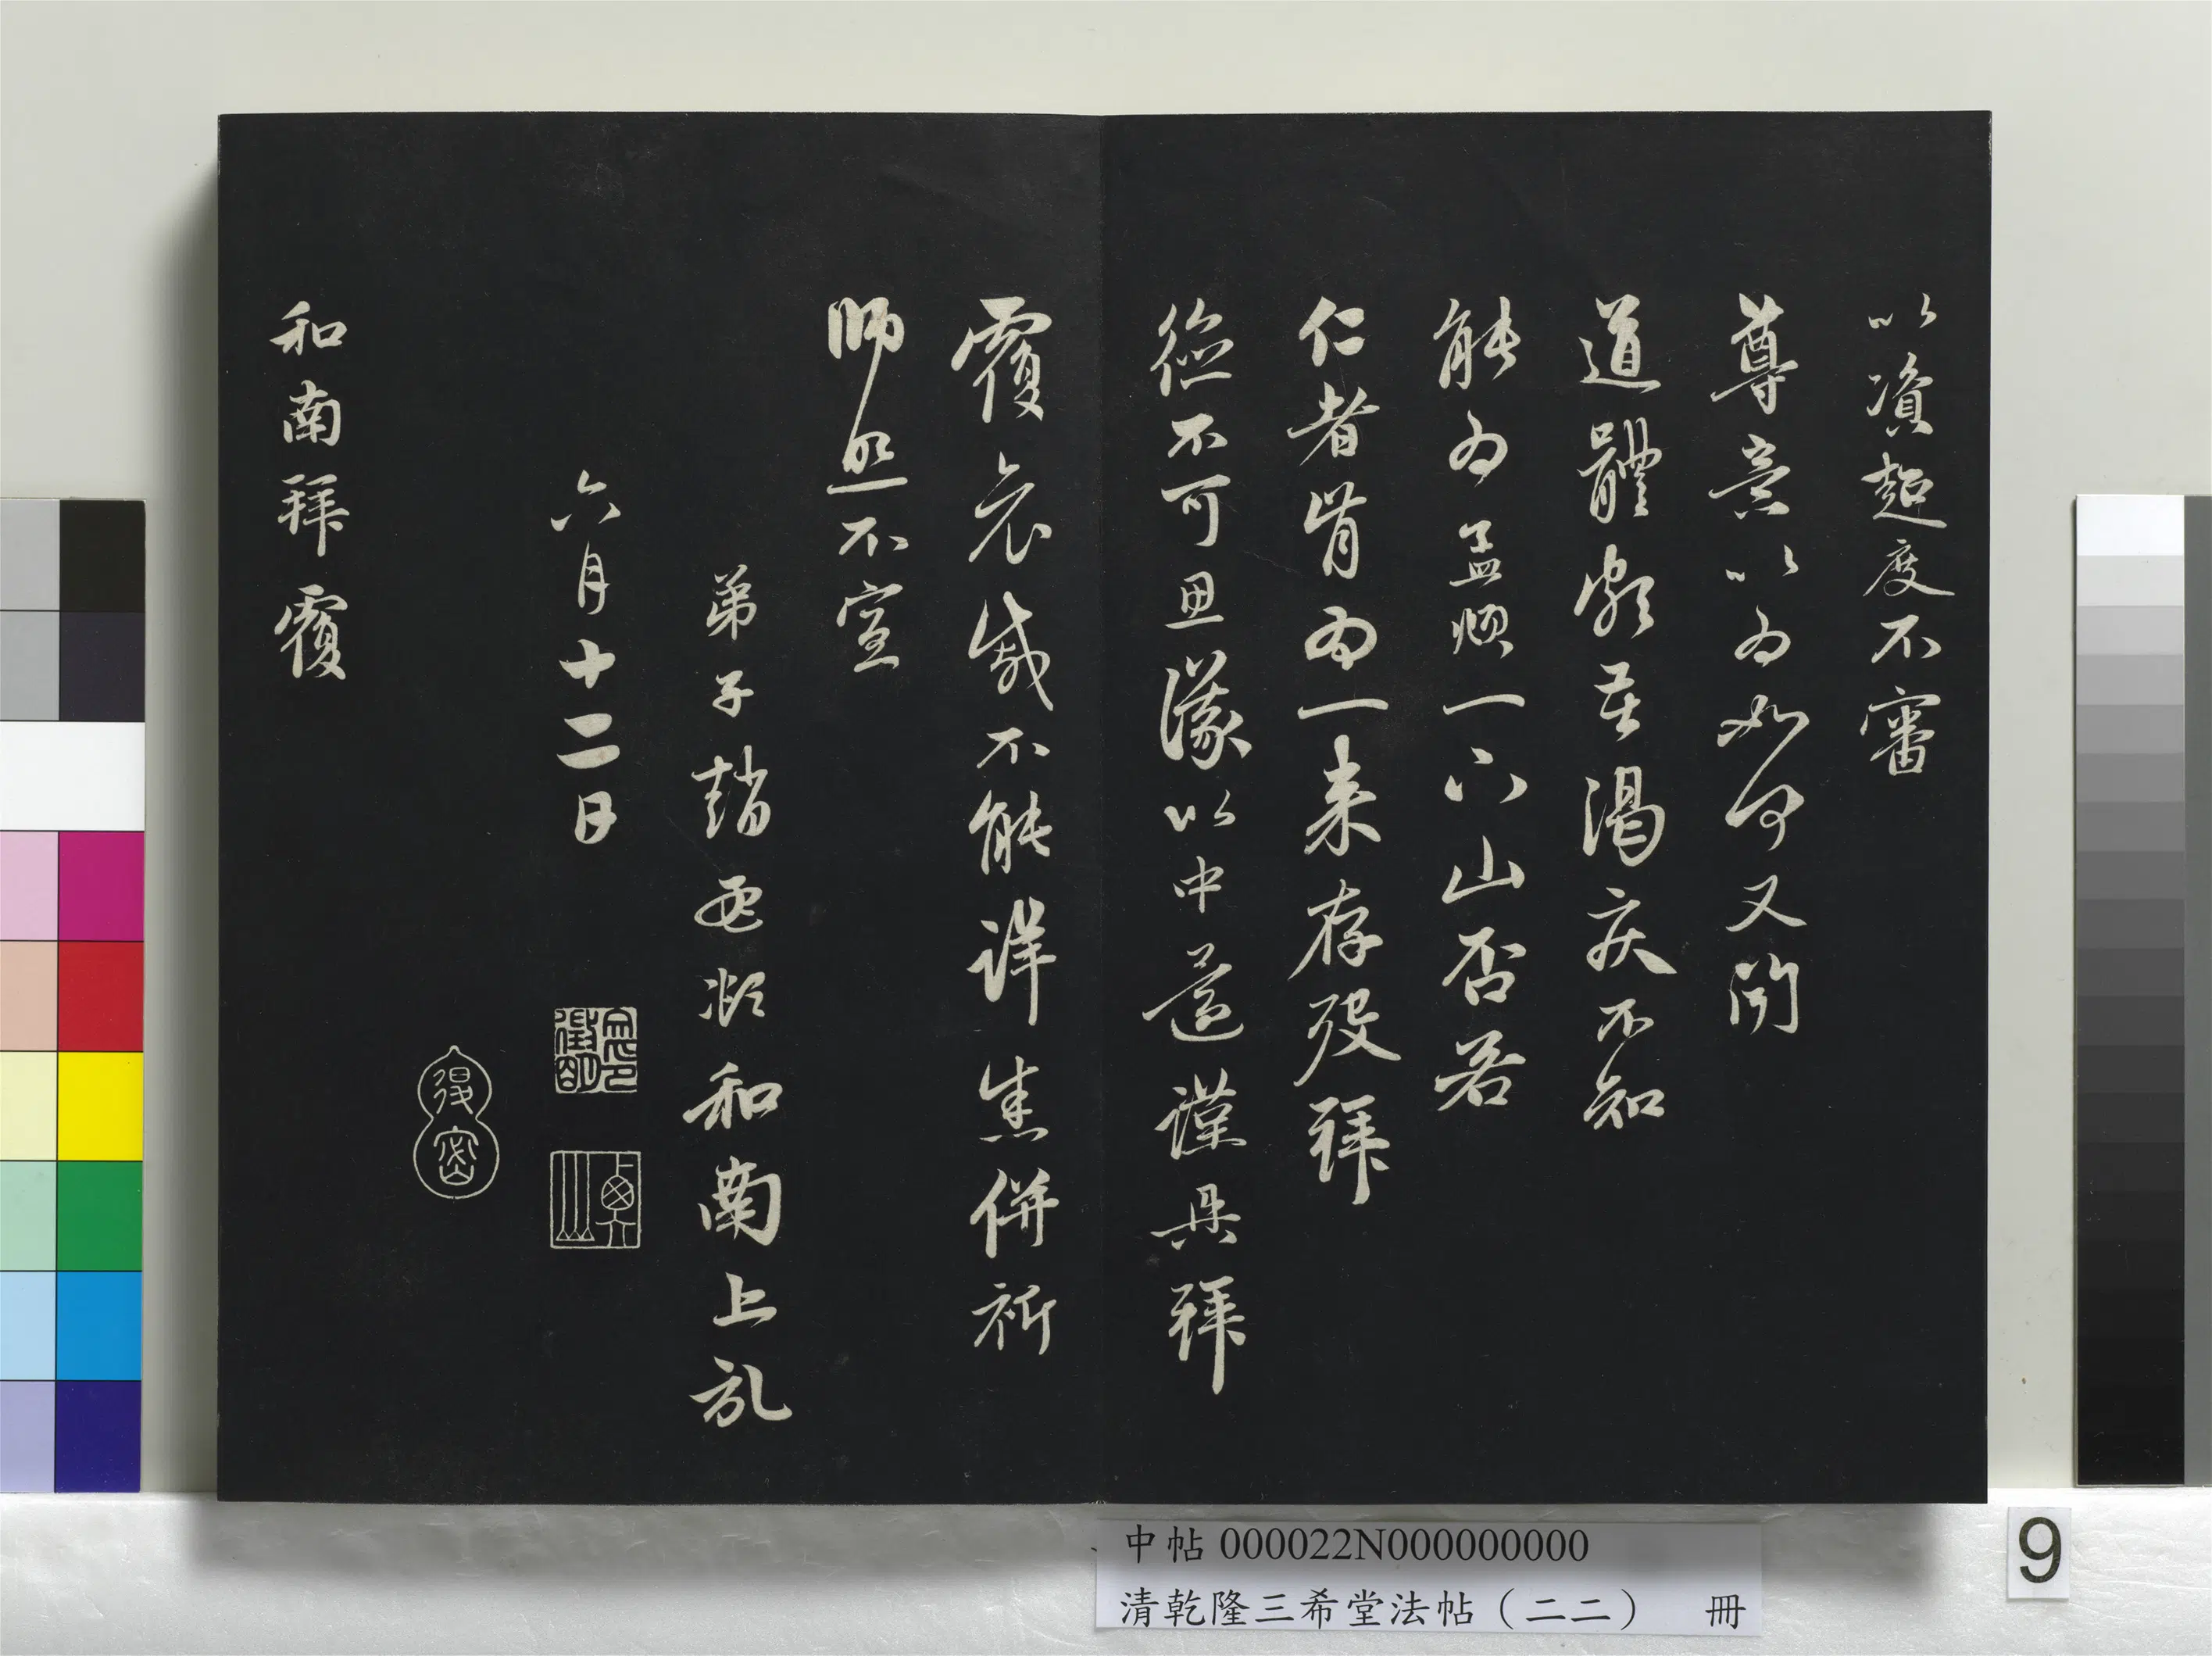 以資超度不審
尊意以為如何又聞
道體頗苦渴疾不知
能為孟頫一下山否若
仁者肯為一来存歿拜
德不可思議以中還謹具拜
覆哀感不能詳悉併祈
師照不宣
弟子趙孟頫和南上
六月十二日
和南拜覆
中帖 000022N000000000
清乾隆三希堂法帖（二二） 冊
9